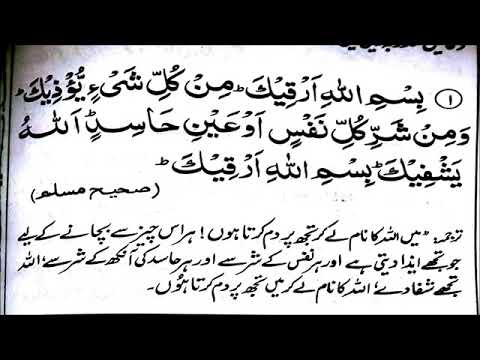 ① بِسْمِ اللهِ اَرْقِيْكَ مِنْ كُلِّ شَیْءٍ يُّؤْذِيْكَ
وَمِنْ شَرِّ كُلِّ نَفْسٍ اَوْ عَيْنِ حَاسِدٍ اَللهُ
يَشْفِيْكَ بِسْمِ اللهِ اَرْقِيْكَ
(صحیح مسلم)
ترجمہ: "میں اللہ کا نام لے کر تجھ پر دم کرتا ہوں! ہر اس چیز سے بچانے کے لیے
جو تجھے ایذا دیتی ہے اور ہر نفس کے شر سے اور ہر حاسد کی آنکھ کے شر سے، اللہ
تجھے شفا دے، اللہ کا نام لے کر میں تجھ پر دم کرتا ہوں۔